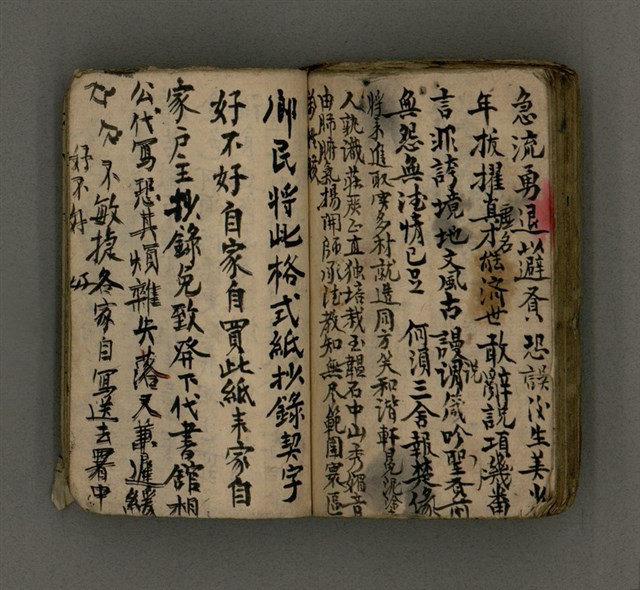 急流勇退以避賢 恐誤後生美少
年拔擢真才能濟世 敢辭說項幾番
言 非誇境地文風古 謾謂箴吟聖有前
無怨無德情已足 何須三舍報楚像
將來進取實多材就造同方笑和諧軒冕
人孰識莊嚴正直独培栽玉韞石中山秀媚音
由肺腑氣揚開師承法教知無尽範圍寰區
鄉民將此格式紙抄錄契字
好不好自家自買此紙來家自
家戶主抄錄免致發下代書館相
公代寫恐其煩雜失落又兼遲緩
不敏捷各家自寫送去署中
好不好